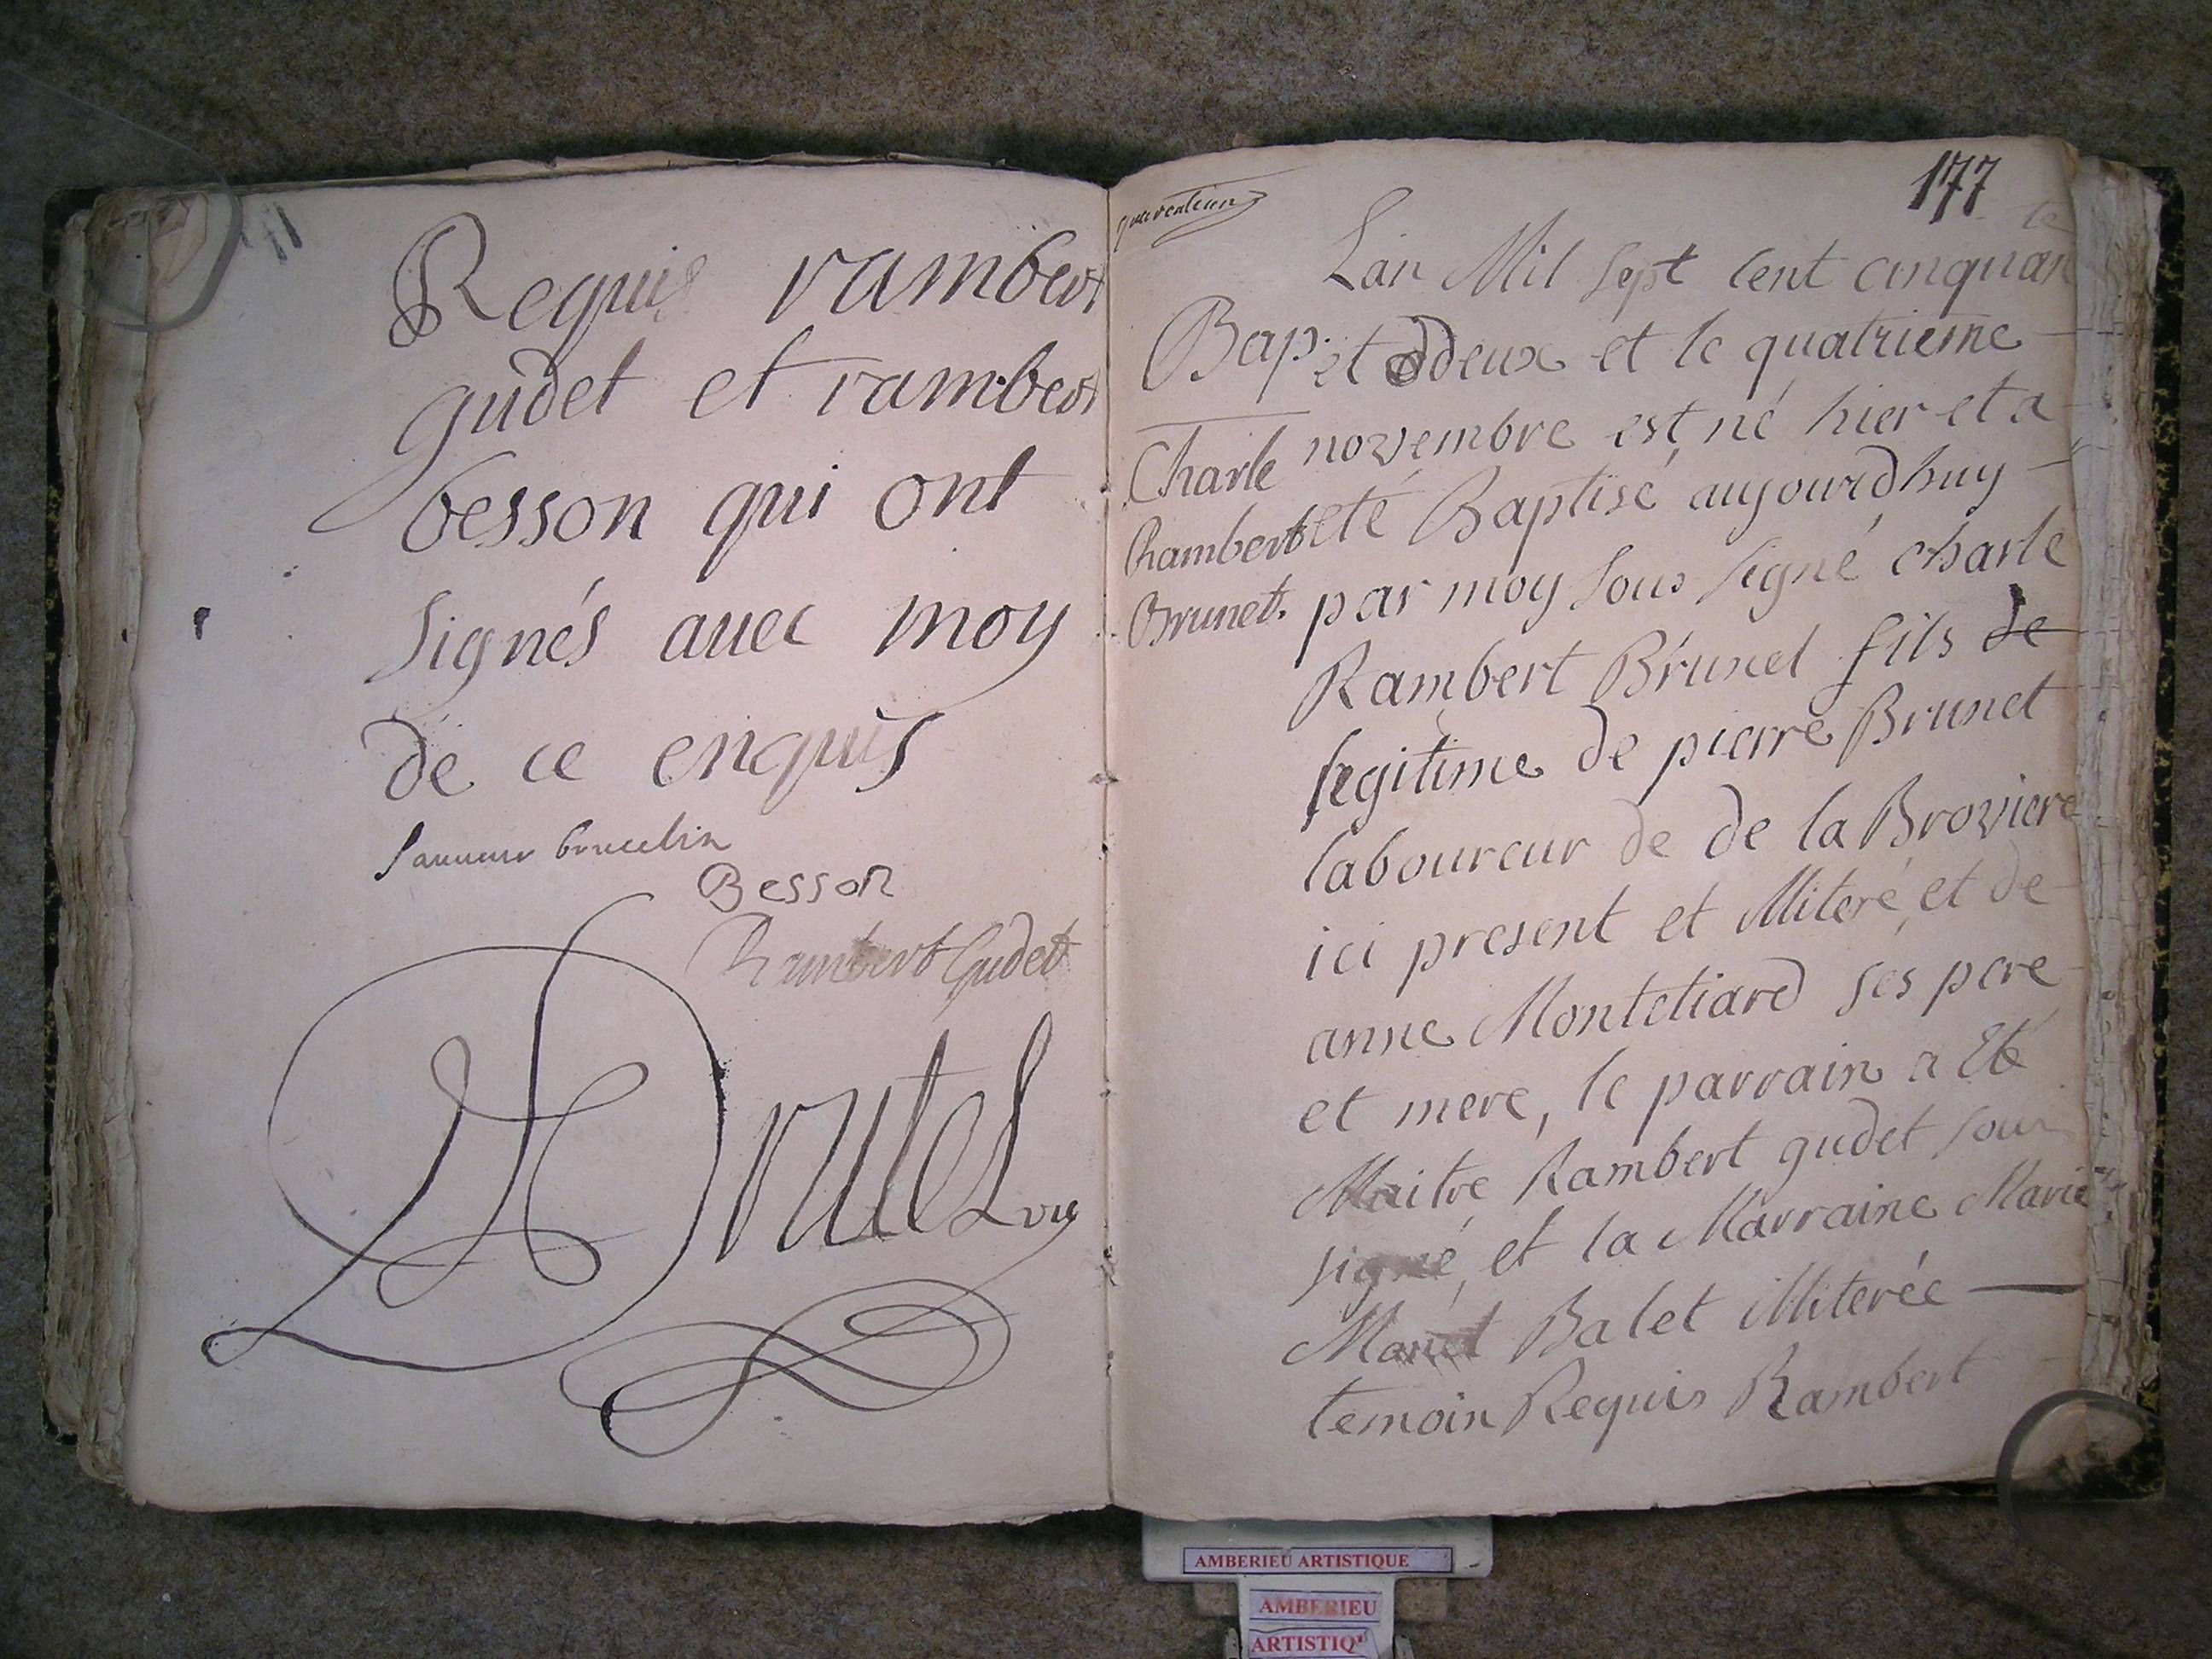 Requis rambert
gudet et rambert
besson qui ont
signés avec moy
de ce enquis
Besson
Rambert Gudet
Drutel vic
177
Lan Mil sept cent cinquan
te
Bap. et deux et le quatrieme
Charle novembre est né hier et a
Rambert eté Baptisé aujourdhuy
Brunet. par moy sous signé charle
Rambert Brunet fils de
legitime de pierre Brunet
laboureur de de la Broviere
ici present et illiteré, et de
anne Montetiard ses pere
et mere, le parrain a eté
Maitre Rambert gudet sous
signé, et la Marraine Marie
Balet illiterée
temoin Requis Rambert
AMBERIEU ARTISTIQUE
AMBERIEU
ARTISTIQ